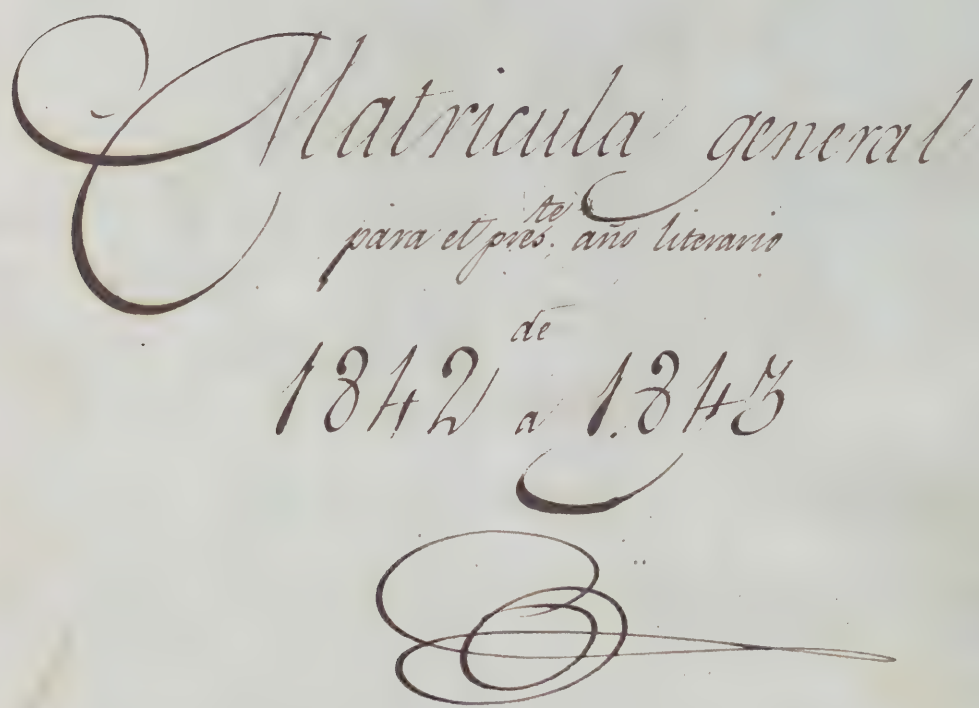 Matricula general
para el pres.te año literario
de
1842 a 1843